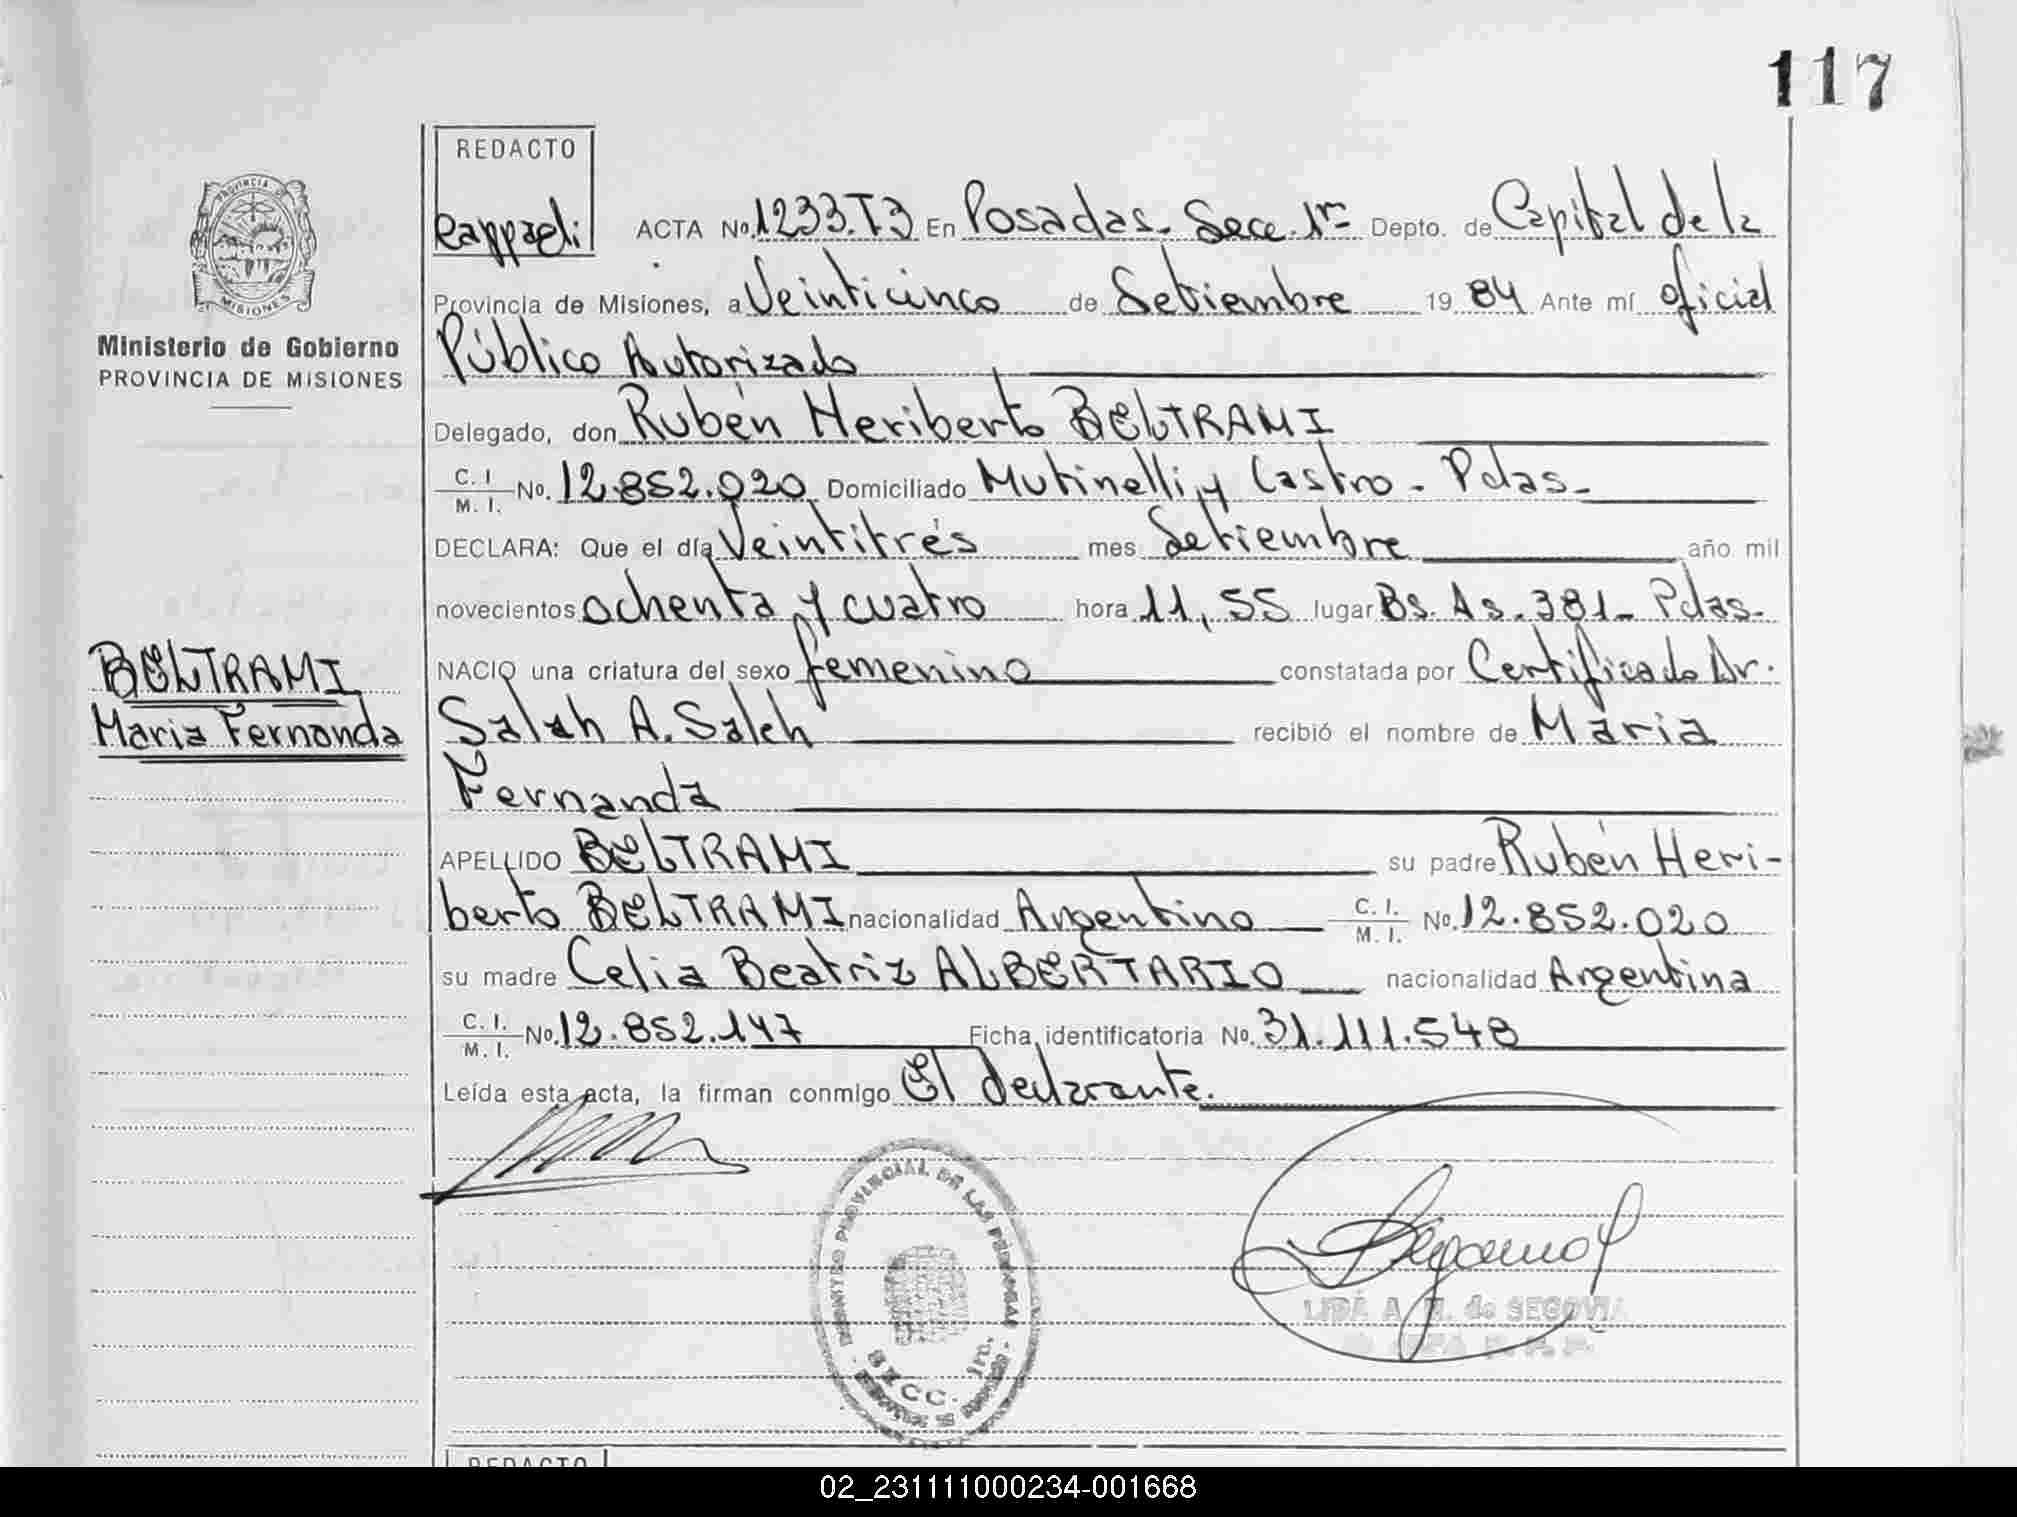 117
REDACTO
Rappaeli
ACTA No. 1233.T3 En Posadas- Secc. 1ra Depto. de Capital de la
Provincia de Misiones, a Veinticinco de Setiembre 19 84 Ante mí oficial
Público Autorizado
Delegado, don Rubén Heriberto BELTRAMI
C. I. / M. I. No. 12.852.020 Domiciliado Mutinelli y Castro - Pdas-
DECLARA: Que el día Veintitrés mes Setiembre año mil
novecientos ochenta y cuatro hora 11,55 lugar Bs. As. 381- Pdas-
NACIO una criatura del sexo femenino constatada por Certificado Dr.
Salah A. Saleh recibió el nombre de Maria
Fernanda
APELLIDO BELTRAMI su padre Rubén Heri-
berto BELTRAMI nacionalidad Argentino C. I. / M. I. No. 12.852.020
su madre Celia Beatriz ALBERTARIO nacionalidad Argentina
C. I. / M. I. No. 12.852.147 Ficha identificatoria No. 31.111.548
Leída esta acta, la firman conmigo El declarante.
PROVINCIA DE
MISIONES
Ministerio de Gobierno
PROVINCIA DE MISIONES
BELTRAMI
Maria Fernanda
PROVINCIAL DE LAS PERSONAS
SECC. 1ra.
LIDA A. de SEGOVIA
REDACTO
02_231111000234-001668